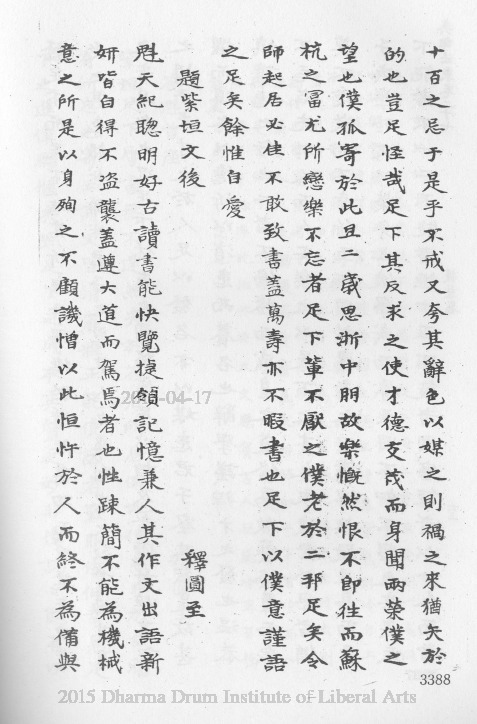 十百之忌于是乎不戒又夸其辭色以媒之則禍之來猶矢於
的也豈足怪哉足下其反求之使才德支茂而身聞兩榮僕之
望也僕孤寄於此且二歲思浙中朋故樂慨然恨不即往而蘇
杭之冨尤所戀樂不忘者足下輩不厭之僕老於二邦足矣今
師起居必佳不敢致書蓋萬壽亦不暇書也足下以僕意謹語
之足矣餘惟自愛
題紫垣文後
釋圓至
甡天紀聰明好古讀書能快覽捷領記憶兼人其作文出語新
妍皆自得不盗襲蓋遵大道而駕焉者也性踈簡不能為機械
意之所是以身殉之不顧譏憎以此恒忤於人而終不為備與
3388
2015 Dharma Drum Institute of Liberal Arts